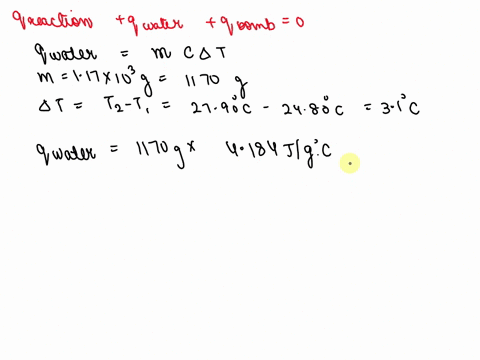 qreaction + qwater + qbomb = 0
qwater = m C ΔT
m = 1.17 × 10³ g = 1170 g
ΔT = T₂ - T₁ = 27.90°C - 24.80°C = 3.1°C
qwater = 1170 g × 4.184 J/g°.C